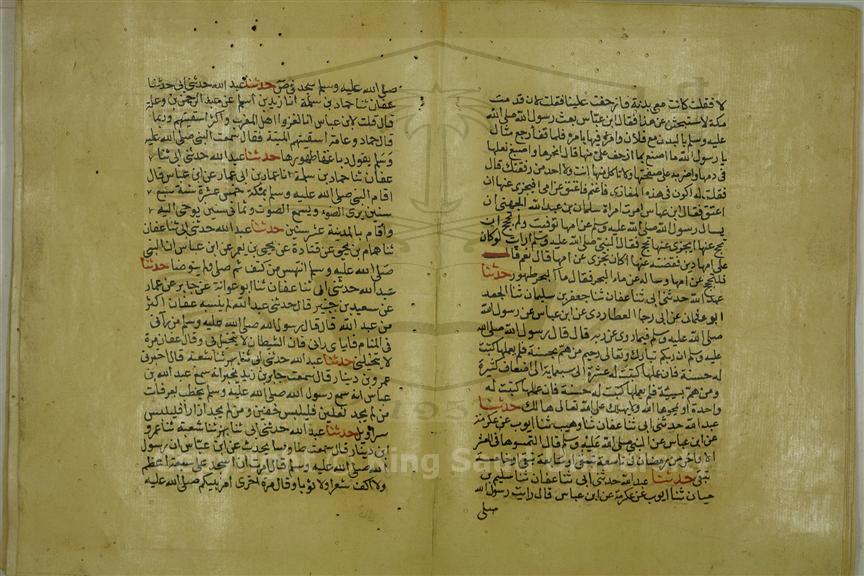 لا فقلت كانت معي بدنة فازحفت علينا فقلت لئن قدمت
مكة لاستبحثن عن هذا فقال ابن عباس بعث رسول الله صلى الله
عليه وسلم بالبدن مع فلان وامره فيها بامره فلما قفا رجع فقال
يا رسول الله ما اصنع بما ازحف علي منها قال انحرها واصبغ نعلها
في دمها واضربه على صفحتها ولا تاكل منها انت ولا احد من رفقتك قال
فقلت له اكون في هذه المغازي فاغنم فاعتق عن امي افيجزي عنها ان
اعتق فقال ابن عباس امرت امراة سلمان بن عبد الله الجهني ان
يسال رسول الله صلى الله عليه وسلم عن امها توفيت ولم تحج ايجزي
تحج عنها فقال النبي صلى الله عليه وسلم ارايت لو كان
على امها دين فقضته عنها اكان يجزي عن امها قال نعم قال
فلتحج عن امها وساله عن ماء البحر فقال ماء البحر طهور حدثنا
عبد الله حدثني ابي ثنا عفان ثنا جعفر بن سليمان ثنا الجعد
ابو عثمان عن ابي رجاء العطاردي عن ابن عباس عن رسول الله
صلى الله عليه وسلم فيما روى عن ربه قال قال رسول الله صلى الله
عليه وسلم ان ربكم تبارك وتعالى رحيم من هم بحسنة فلم يعملها كتبت
له حسنة فان عملها كتبت له عشرة الى سبعماية الى اضعاف كثيرة
ومن هم بسيئة فلم يعملها كتبت له حسنة فان عملها كتبت له
واحدة او يمحوها الله ولا يهلك على الله تعالى الا هالك حدثنا
عبد الله حدثني ابي ثنا عفان ثنا وهيب ثنا ايوب عن عكرمة
عن ابن عباس عن النبي صلى الله عليه وسلم قال التمسوها في العشر
الاواخر من رمضان في تاسعة تبقى او سابعة تبقى او خامسة
تبقى حدثنا عبد الله حدثني ابي ثنا عفان ثنا سليم بن
حيان ثنا ايوب عن عكرمة عن ابن عباس قال رايت رسول الله
صلى
صلى الله عليه وسلم سجد في ص حدثنا عبد الله حدثني ابي حدثنا
عفان ثنا حماد بن سلمة انا زيد بن اسلم عن عبد الرحمن بن وعلة
قال قلت لابن عباس انا نغزوا اهل المغرب واكثر اسقيتهم وربما
قال حماد وعامة اسقيتهم الميتة فقال سمعت النبي صلى الله عليه
وسلم يقول دباغها طهورها حدثنا عبد الله حدثني ابي ثنا
عفان ثنا حماد بن سلمة انا عمار بن ابي عمار عن ابن عباس قال
اقام النبي صلى الله عليه وسلم بمكة خمس عشرة سنة سبع
سنين يرى الضوء ويسمع الصوت وثماني سنين يوحى اليه
واقام بالمدينة عشر سنين حدثنا عبد الله حدثني ابي ثنا عفان
ثنا همام بن يحيى عن قتادة عن يحيى بن يعمر عن ابن عباس ان النبي
صلى الله عليه وسلم انتهس من كتف ثم صلى ولم يتوضا حدثنا
عبد الله حدثني ابي ثنا عفان ثنا ابو عوانة عن جابر عن عمار
عن سعيد بن جبير قال حدثني عبد الله لم ينسبه عفان اكثر
من عبد الله قال قال رسول الله صلى الله عليه وسلم من رآني
في المنام فاياي راى فان الشيطان لا يتخيل بي وقال عفان مرة
لا يتخيلني حدثنا عبد الله حدثني ابي ثنا بهز ثنا شعبة قال اخبرني
عمرو بن دينار قال سمعت جابر بن زيد يخبر انه سمع عبد الله بن
عباس انه سمع رسول الله صلى الله عليه وسلم يخطب بعرفات
من لم يجد نعلين فليلبس خفين ومن لم يجد ازارا فليلبس
سراويل حدثنا عبد الله حدثني ابي ثنا بهز ثنا شعبة ثنا عمرو
ابن دينار قال سمعت طاوسا يحدث عن ابن عباس ان رسول
الله صلى الله عليه وسلم قال امرت ان اسجد على سبعة اعظم
ولا اكف شعرا ولا ثوبا وقال مرة اخرى امر نبيكم صلى الله عليه